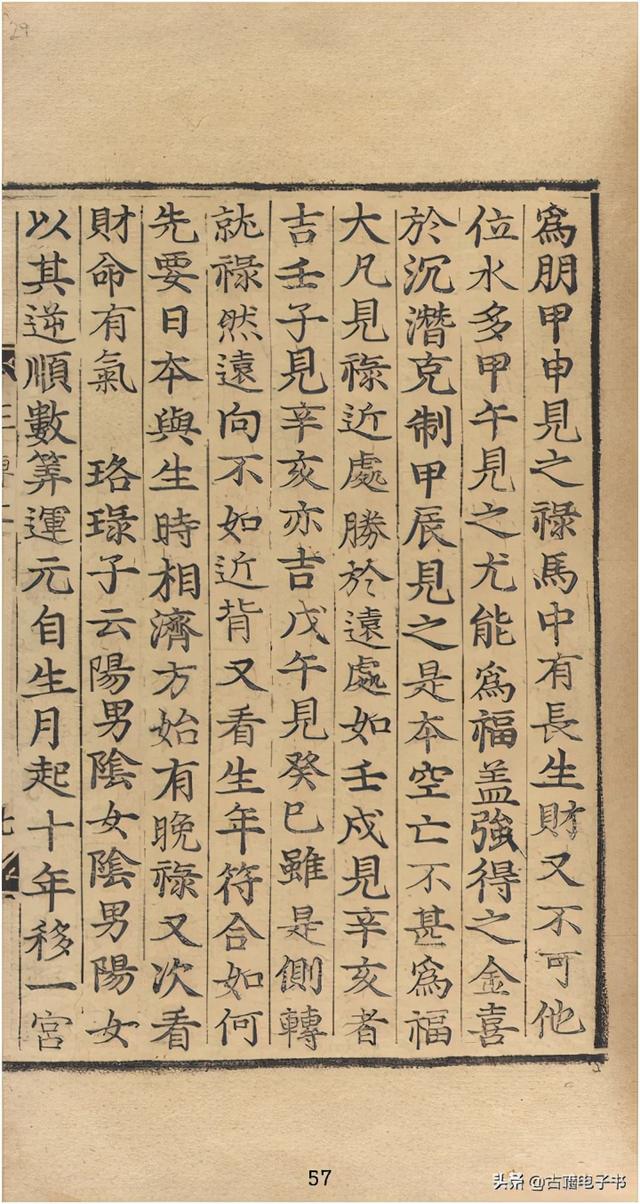 29
為朋甲申見之祿馬中有長生財又不可他
位水多甲午見之尤能為福盖強得之金喜
於沉潛克制甲辰見之是本空亡不甚為福
大凡見祿近處勝於遠處如壬戍見辛亥者
吉壬子見辛亥亦吉戊午見癸巳雖是側轉
就祿然遠向不如近背又看生年符合如何
先要日本與生時相濟方始有晚祿又次看
財命有氣　珞琭子云陽男陰女陰男陽女
以其逆順數筭運元自生月起十年移一宮
57
头条 @古籍电子书